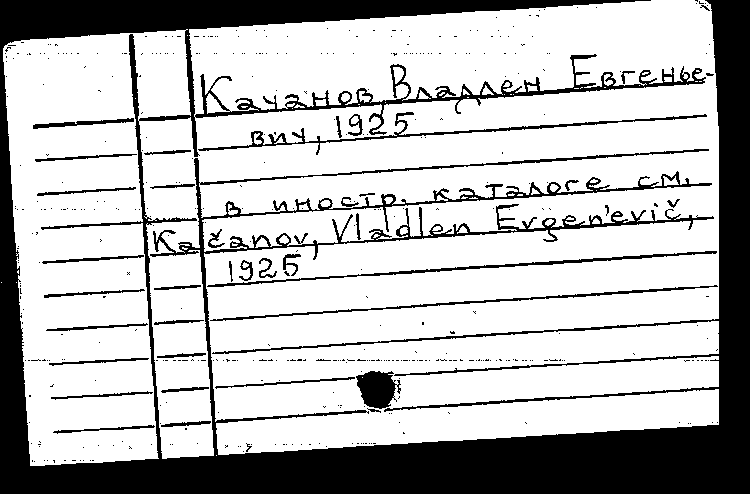 Качанов, Владлен Евгенье-
вич, 1925
в иностр. каталоге см.
Kačanov, Vladlen Evgen'evič,
1925